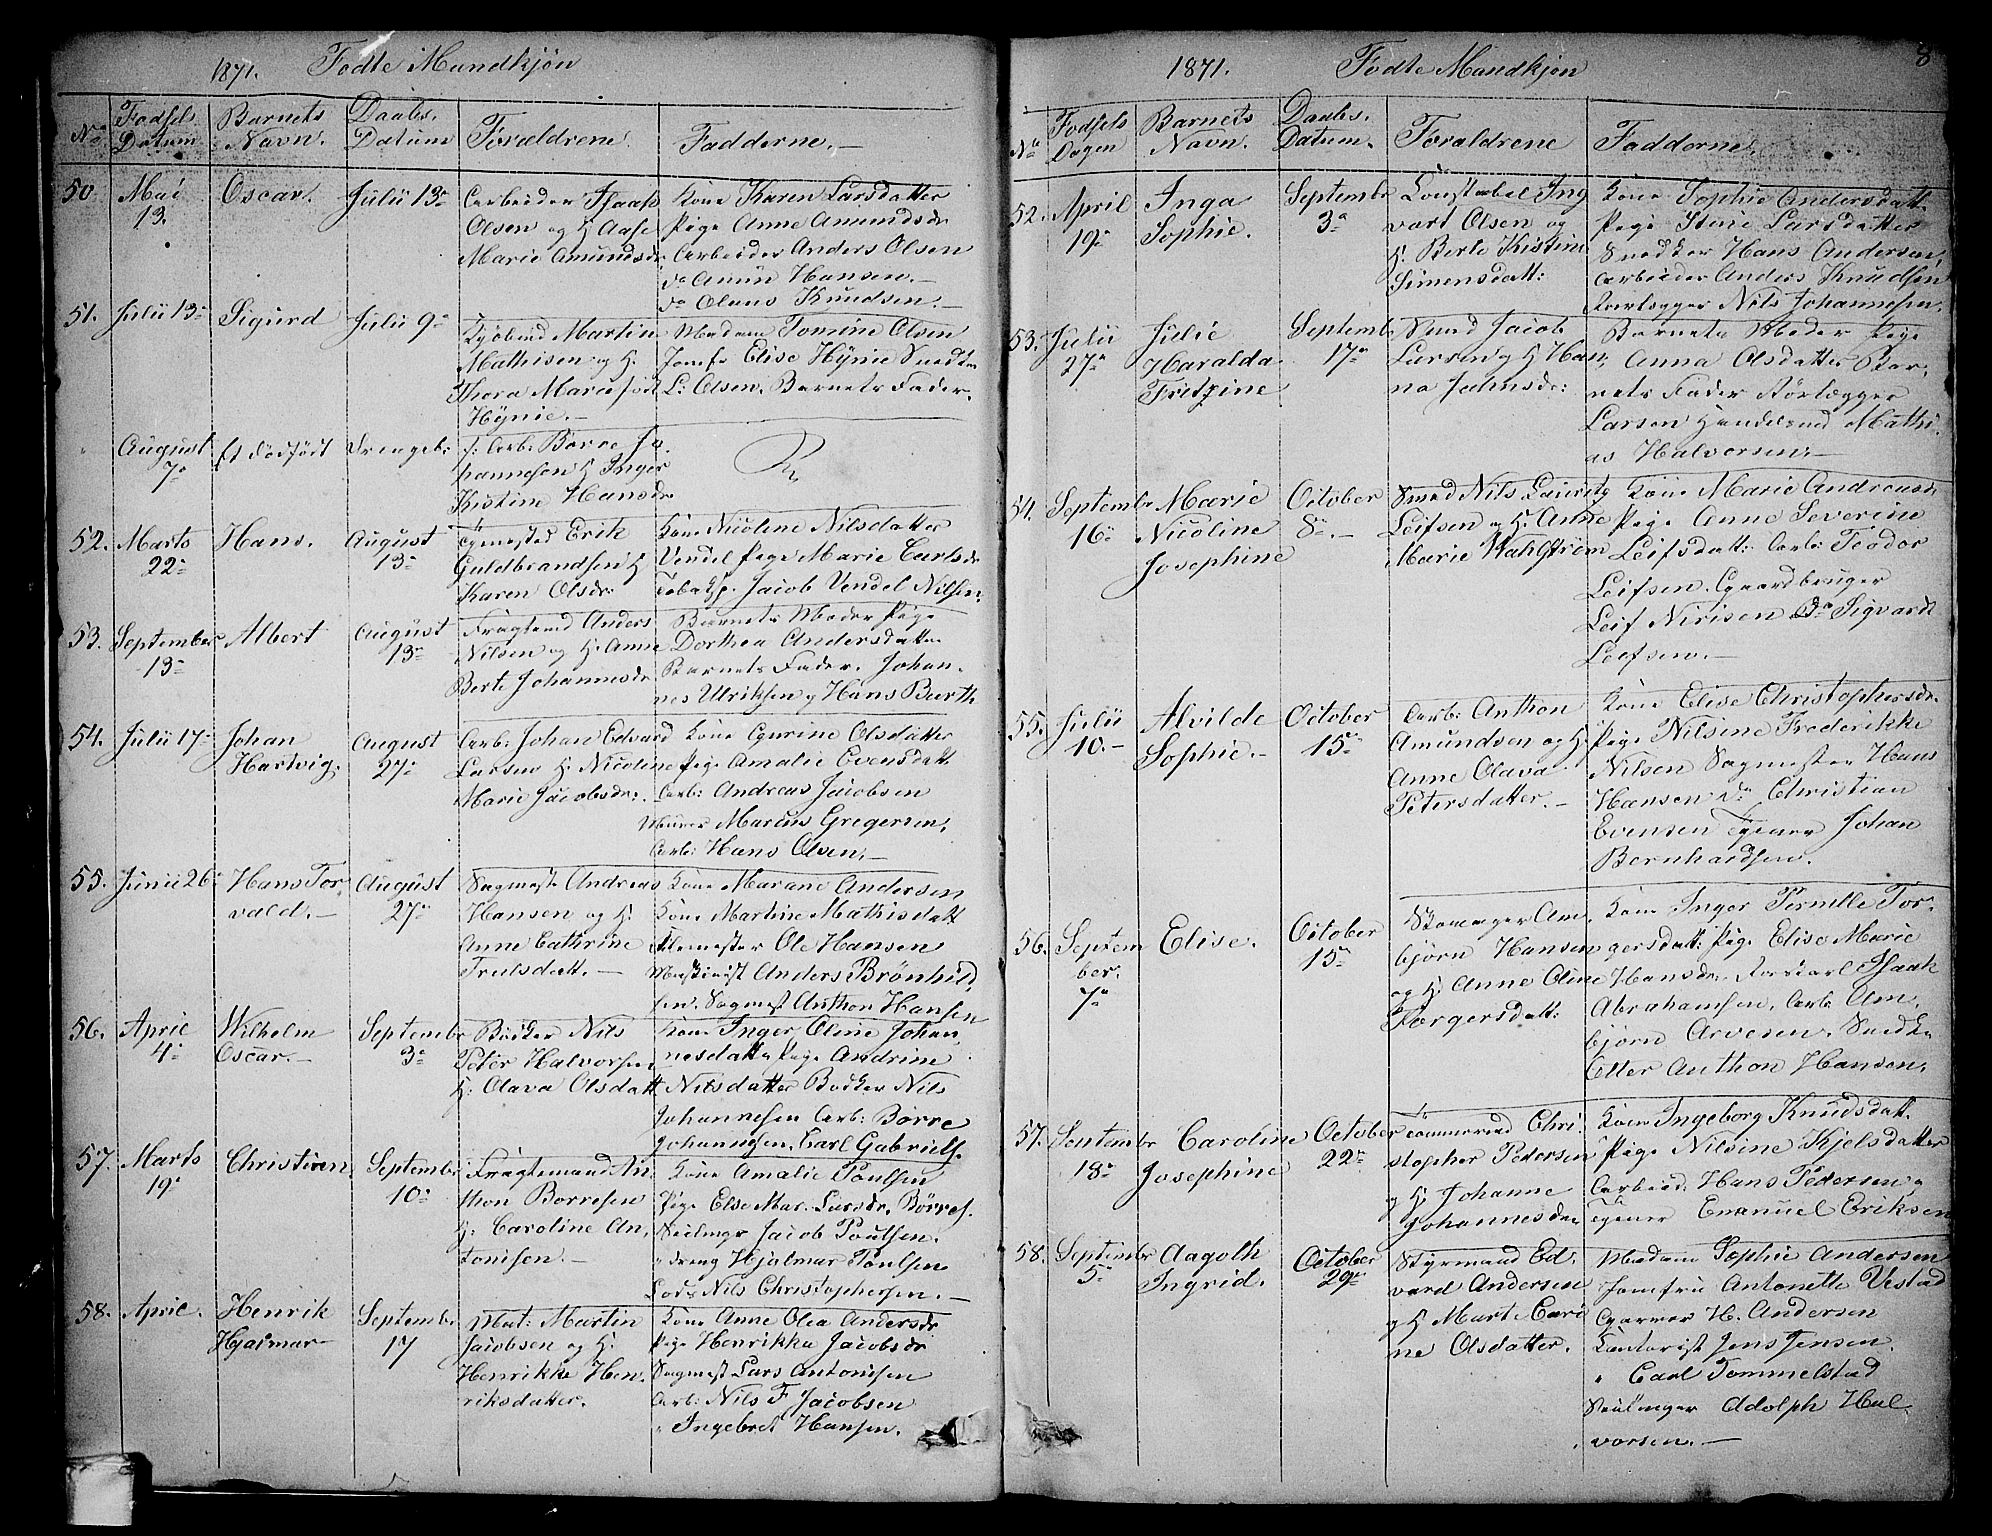 1871. Fødte Mandkjøn
No
Fødsels Datum
Barnets Navn.
Daabs. Datum
Forældrene
Fadderne. —
50
Mai 13.
Oscar.
Julii 13de
Arbeider Isaak
Olsen og H Aase
Marie Amundsdr
Kone Karen Larsdatter
Pige Anne Amundsdr
Arbeider Anders Olsen
do Anun Hansen. —
do Olaus Knudsen. —
51.
Julii 13de
Sigurd
Julii 9de
Kjøbmd Martin
Mathisen og H.
Thora Marie født
Hÿnie. —
Madam Tomine Olsen
Jomfr Elise Hÿnie Snedker
L: Olsen. Barnets Fader.
August 7de
Et dødfødt
Drengeb:
f: Arb: Børre Jo
hannesen H Inger
Kistine Hansdr
52.
Marts 22de
Hans.
August 13de
Erik
Guldbrandsen H
Karen Olsdr
Kone Nicoline Nilsdatter
Vendel Pige Marie Carlsdr
Jacob Vendel Nilsen.
53.
September 13de
Albert
August 13de
Fragtemd Anders
Nilsen og H. Anne
Berte Johannesdr
Barnets Moder Pige
Dorthea Andersdatter
Barnets Fader. Johan-
nes Ulriksen og Hans Barth
54.
Julii 17de
Johan
Hartvig.
August 27de
Arb: Johan Edvard
Larsen H. Nicoline
Marie Jacobsdr:
Kone Gurine Olsdatter
Pige Amalie Evensdatt
Arb: Andreas Jacobsen
Murer Marcus Gregersen,
Arb: Hans Olsen. —
55.
Junii 26de
Hans Tor-
vald. —
August 27de
Sagmester Andreas
Hansen og H.
Anne Cathrine
Trulsdatt. —
Kone Marane Andersen
Kone Martine Mathisdatt
Ole Hansen
Maskinist Anders Brønhild
sen. Sagmest Anthon Hansen
56.
April 4de
Wilhelm
Oscar. —
Septembr 3de
Bødker Nils
Peter Halvorsen
H: Olava Olsdatt
Kone Inger Oline Johan-
nesdatter Pige Andrine
Nilsdatter Bødker Nils
Johannesen Arb: Børre
Johannesen. Carl Gabriels.
57.
Marts 19de
Christian
September 10de
Fragtemand An-
thon Børresen
H: Caroline An-
tonisen. —
Kone Amalie Poulsen
Pige Else Mar. Larsdr. Børres.
Jacob Poulsen.
" dreng Hjalmar Poulsen
Lods Nils Christophersen. —
58.
April.
Henrik
Hjalmar
Septembr 17
Mat: Martin
Jacobsen og H.
Henrikke Hen-
riksdatter.
Kone Anne Olea Andersdr
Pige Henrikka Jacobsdr
Sagmest Lars Antonisen
Arb: Nils F Jacobsen
" Ingebret Hansen.
1871. Fødte Mandkjøn 8
No
Fødsels Dagen
Barnets Navn.
Daabs. Datum.
Forældrene
Fadderne.
52.
April 19de
Inga
Sophie.
Septembr 3de
Konstabel Ing
vart Olsen og
H. Berte Kistine
Simensdatt:
Kone Sophie Andersdatt.
Pige Stine Larsdatter
Snedker Hans Andersen,
Arbeider Anders Knudsen
Rørlægger Nils Johannesen.
53.
Julii 27de
Julie
Haralda
Fritzine
Septembr 17de
Smed Jacob
Larsen og H Han-
na Jahnsdr:
Barnets Moder Pige
Anna Olsdatter Bar-
nets Fader Rørlægger
Larsen Handelsmd Mathi-
as Halvorsen. —
54.
Septembr 16de
Marie
Nicoline
Josephine
October 8de. —
Smed Nils Lauritz
Leifsen og H. Anne
Marie Wahlstrøm
Kone Marie Andreasdr
Pige Anne Severine
Leifsdatt: Arb: Teodor
Leifsen. Gaardbruger
Leif Nirisen do Sigvardt
Leifsen. —
55.
Julii 10. —
Alvilde
Sophie. —
October 15de
Arb: Anthon
Amundsen og H.
Anne Olava
Petersdatter. —
Kone Elise Christophersdr.
Pige Nilsine Frederikke
Nilsen Sagmester Hans
Hansen do Christian
Evensen Johan
Bernhardsen.
56.
Septem
ber. 7de
Elise.
October 15de
Am-
bjørn Hansen
og H. Anne Oline
Torgersdatt:
Kone Inger Pernille Tor-
gersdatt: Pige Elise Marie
Hansdr. Isaak
Abrahamsen. Arb: Am-
bjørn Arvesen. Snedker
Etter Anthon Hansen.
57.
Septembr 18de
Caroline
Josephine
October 22de
Tømmermd Chri-
stopher Pedersen
og H. Johanne
Johannesdr
Kone Ingeborg Knudsdatt.
Pige Nilsine Kjelsdatter
Arbeid: Hans Pedersen og
Emanuel Eriksen
58.
Septembr 5de
Aagoth
Ingrid.
October 29de
Styrmand Ed-
vard Andersen
og H Mart: Cari
ne Olsdatter.
Madam Sophie Andersen
Jomfru Antonette Vestad
H. Andersen
Kontorist Jens Jensen
" Carl Tommelstad
Adolph Hal-
vorsen. —